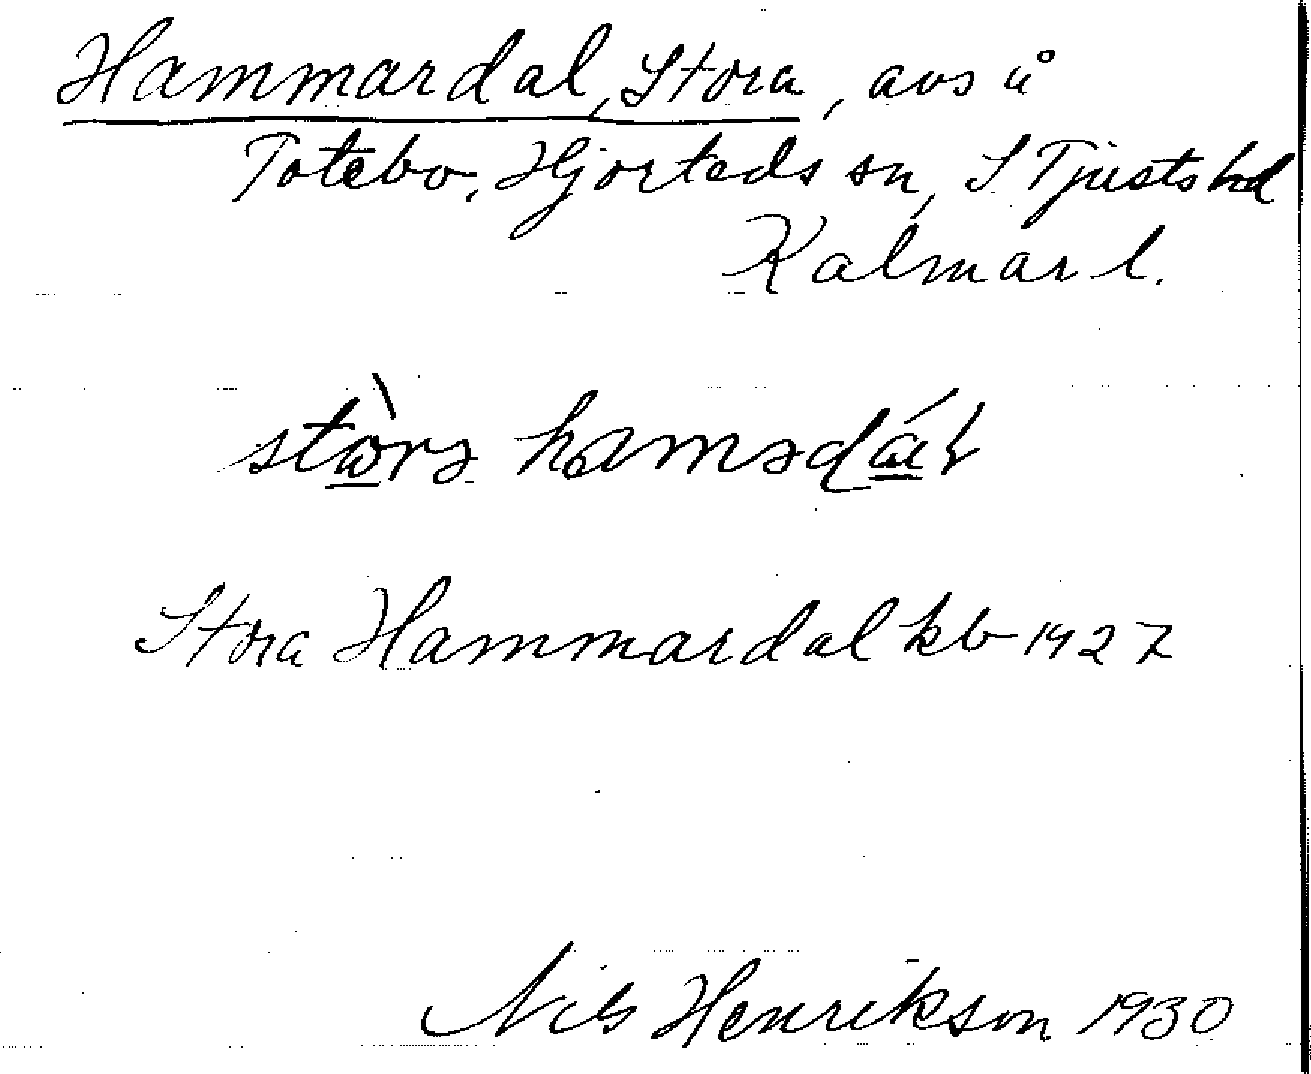 Hammardal, Stora, avs å
Totebo, Hjorteds sn, S Tjusts hd
Kalmar l.
Stora Hammardal kb 1927
Nils Henrikson 1930